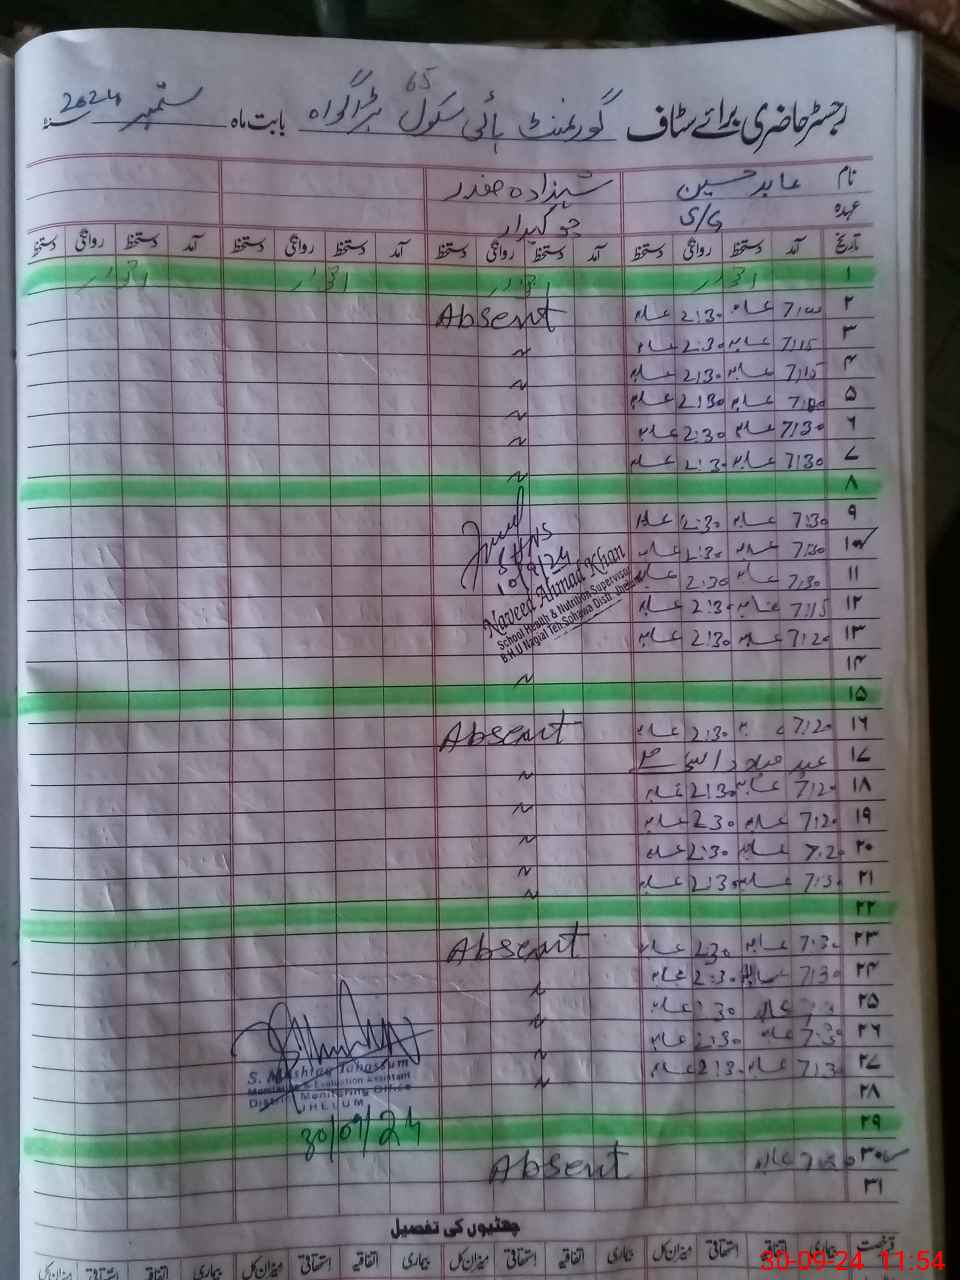 65
رجسٹر حاضری برائے سٹاف گورنمنٹ ہائی سکول بابت ماہ ستمبر 2024
نام عابد حسین شہزادہ صفدر
عہدہ S/G چوکیدار
تاریخ آمد دستخط روانگی دستخط آمد دستخط روانگی دستخط آمد دستخط روانگی دستخط آمد دستخط روانگی دستخط
۱ اتوار اتوار اتوار اتوار
۲ 7:00 عابد 2:30 عابد Absent
۳ 7:15 عابد 2:30 عابد 〃
۴ 7:15 عابد 2:30 عابد 〃
۵ 7:00 عابد 2:30 عابد 〃
۶ 7:30 عابد 2:30 عابد 〃
۷ 7:30 عابد 2:30 عابد 〃
۸
۹ 7:30 عابد 2:30 عابد
۱۰ 7:30 عابد 2:30 عابد SHNS
10/9/24
Naveed Ahmad Khan
School Health & Nutrition Supervisor
B.H.U Nagial Teh Sohawa Distt Jhelum
۱۱ 7:30 عابد 2:30 عابد
۱۲ 7:15 عابد 2:30 عابد
۱۳ 7:20 عابد 2:30 عابد
۱۴ 〃
۱۵
۱۶ 7:20 2:30 عابد Absent
۱۷ عید میلاد النبی 〃
۱۸ 7:20 عابد 2:30 عابد 〃
۱۹ 7:20 عابد 2:30 عابد 〃
۲۰ 7:20 عابد 2:30 عابد 〃
۲۱ 7:30 عابد 2:30 عابد 〃
۲۲
۲۳ 7:30 عابد 2:30 عابد Absent
۲۴ 7:30 عابد 2:30 عابد 〃
۲۵ عابد 2:30 عابد 〃
۲۶ 7:30 عابد 2:30 عابد 〃
۲۷ 7:30 عابد 2:30 عابد 〃
۲۸
S. Mushtaq Tabassum
Monitoring & Evaluation Assistant
District Monitoring Office
JHELUM
۲۹
30/09/24
۳۰ عابد Absent
۳۱
چھٹیوں کی تفصیل
رخصت بیماری اتفاقیہ استحقاقی میزان کل بیماری اتفاقیہ استحقاقی میزان کل بیماری اتفاقیہ استحقاقی میزان کل بیماری اتفاقیہ استحقاقی میزان کل
30-09-24 11:54